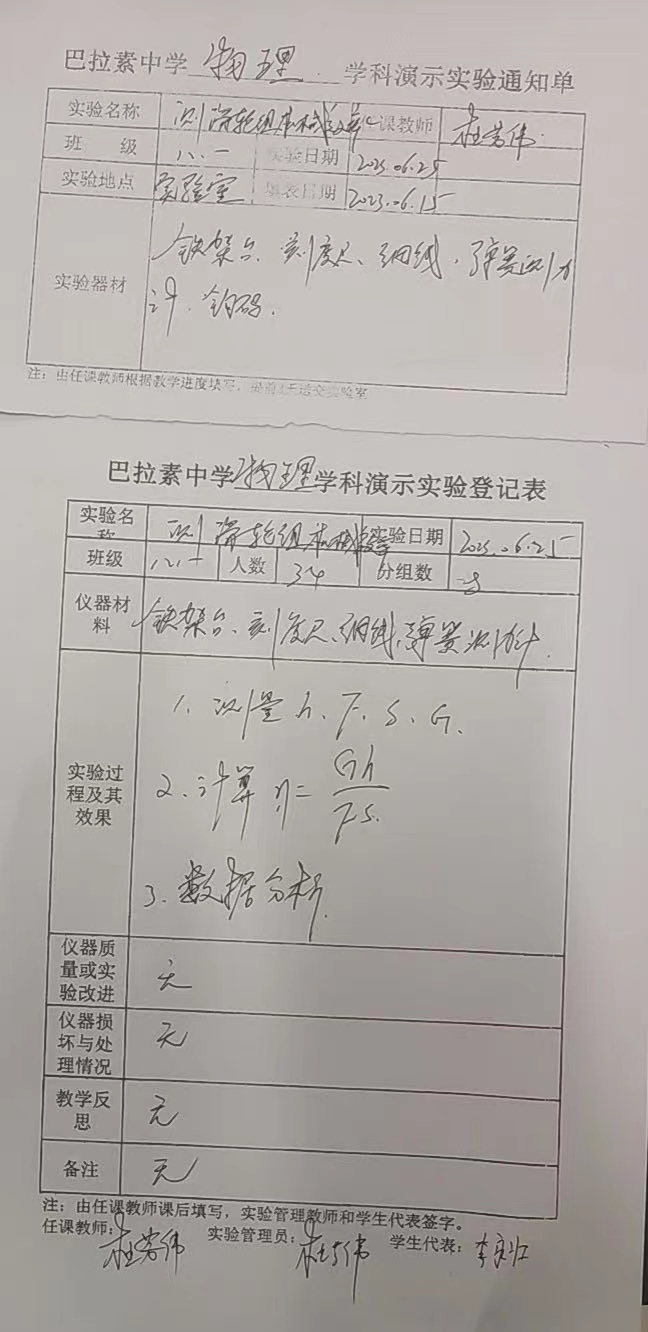 巴拉素中学 物理 学科演示实验通知单
实验名称 测滑轮组机械效率 课教师 杜芳伟
班 级 八.一 实验日期 2023.06.25
实验地点 实验室 填表日期 2023.06.15
实验器材 铁架台、刻度尺、细线、弹簧测力
计、钩码.
注：由任课教师根据教学进度填写，提前 天送交实验室
巴拉素中学物理学科演示实验登记表
实验名称 测滑轮组机械效率 实验日期 2023.06.25
班级 八.一 人数 34 分组数
仪器材料 铁架台、刻度尺、细线、弹簧测力计.
实验过程及其效果
1、测量 h、F、S、G.
2、计算 η= Gh
FS.
3、数据分析.
仪器质量或实验改进 无
仪器损坏与处理情况 无
教学反思 无
备注 无
注：由任课教师课后填写，实验管理教师和学生代表签字。
任课教师： 杜芳伟 实验管理员： 杜芳伟 学生代表： 李